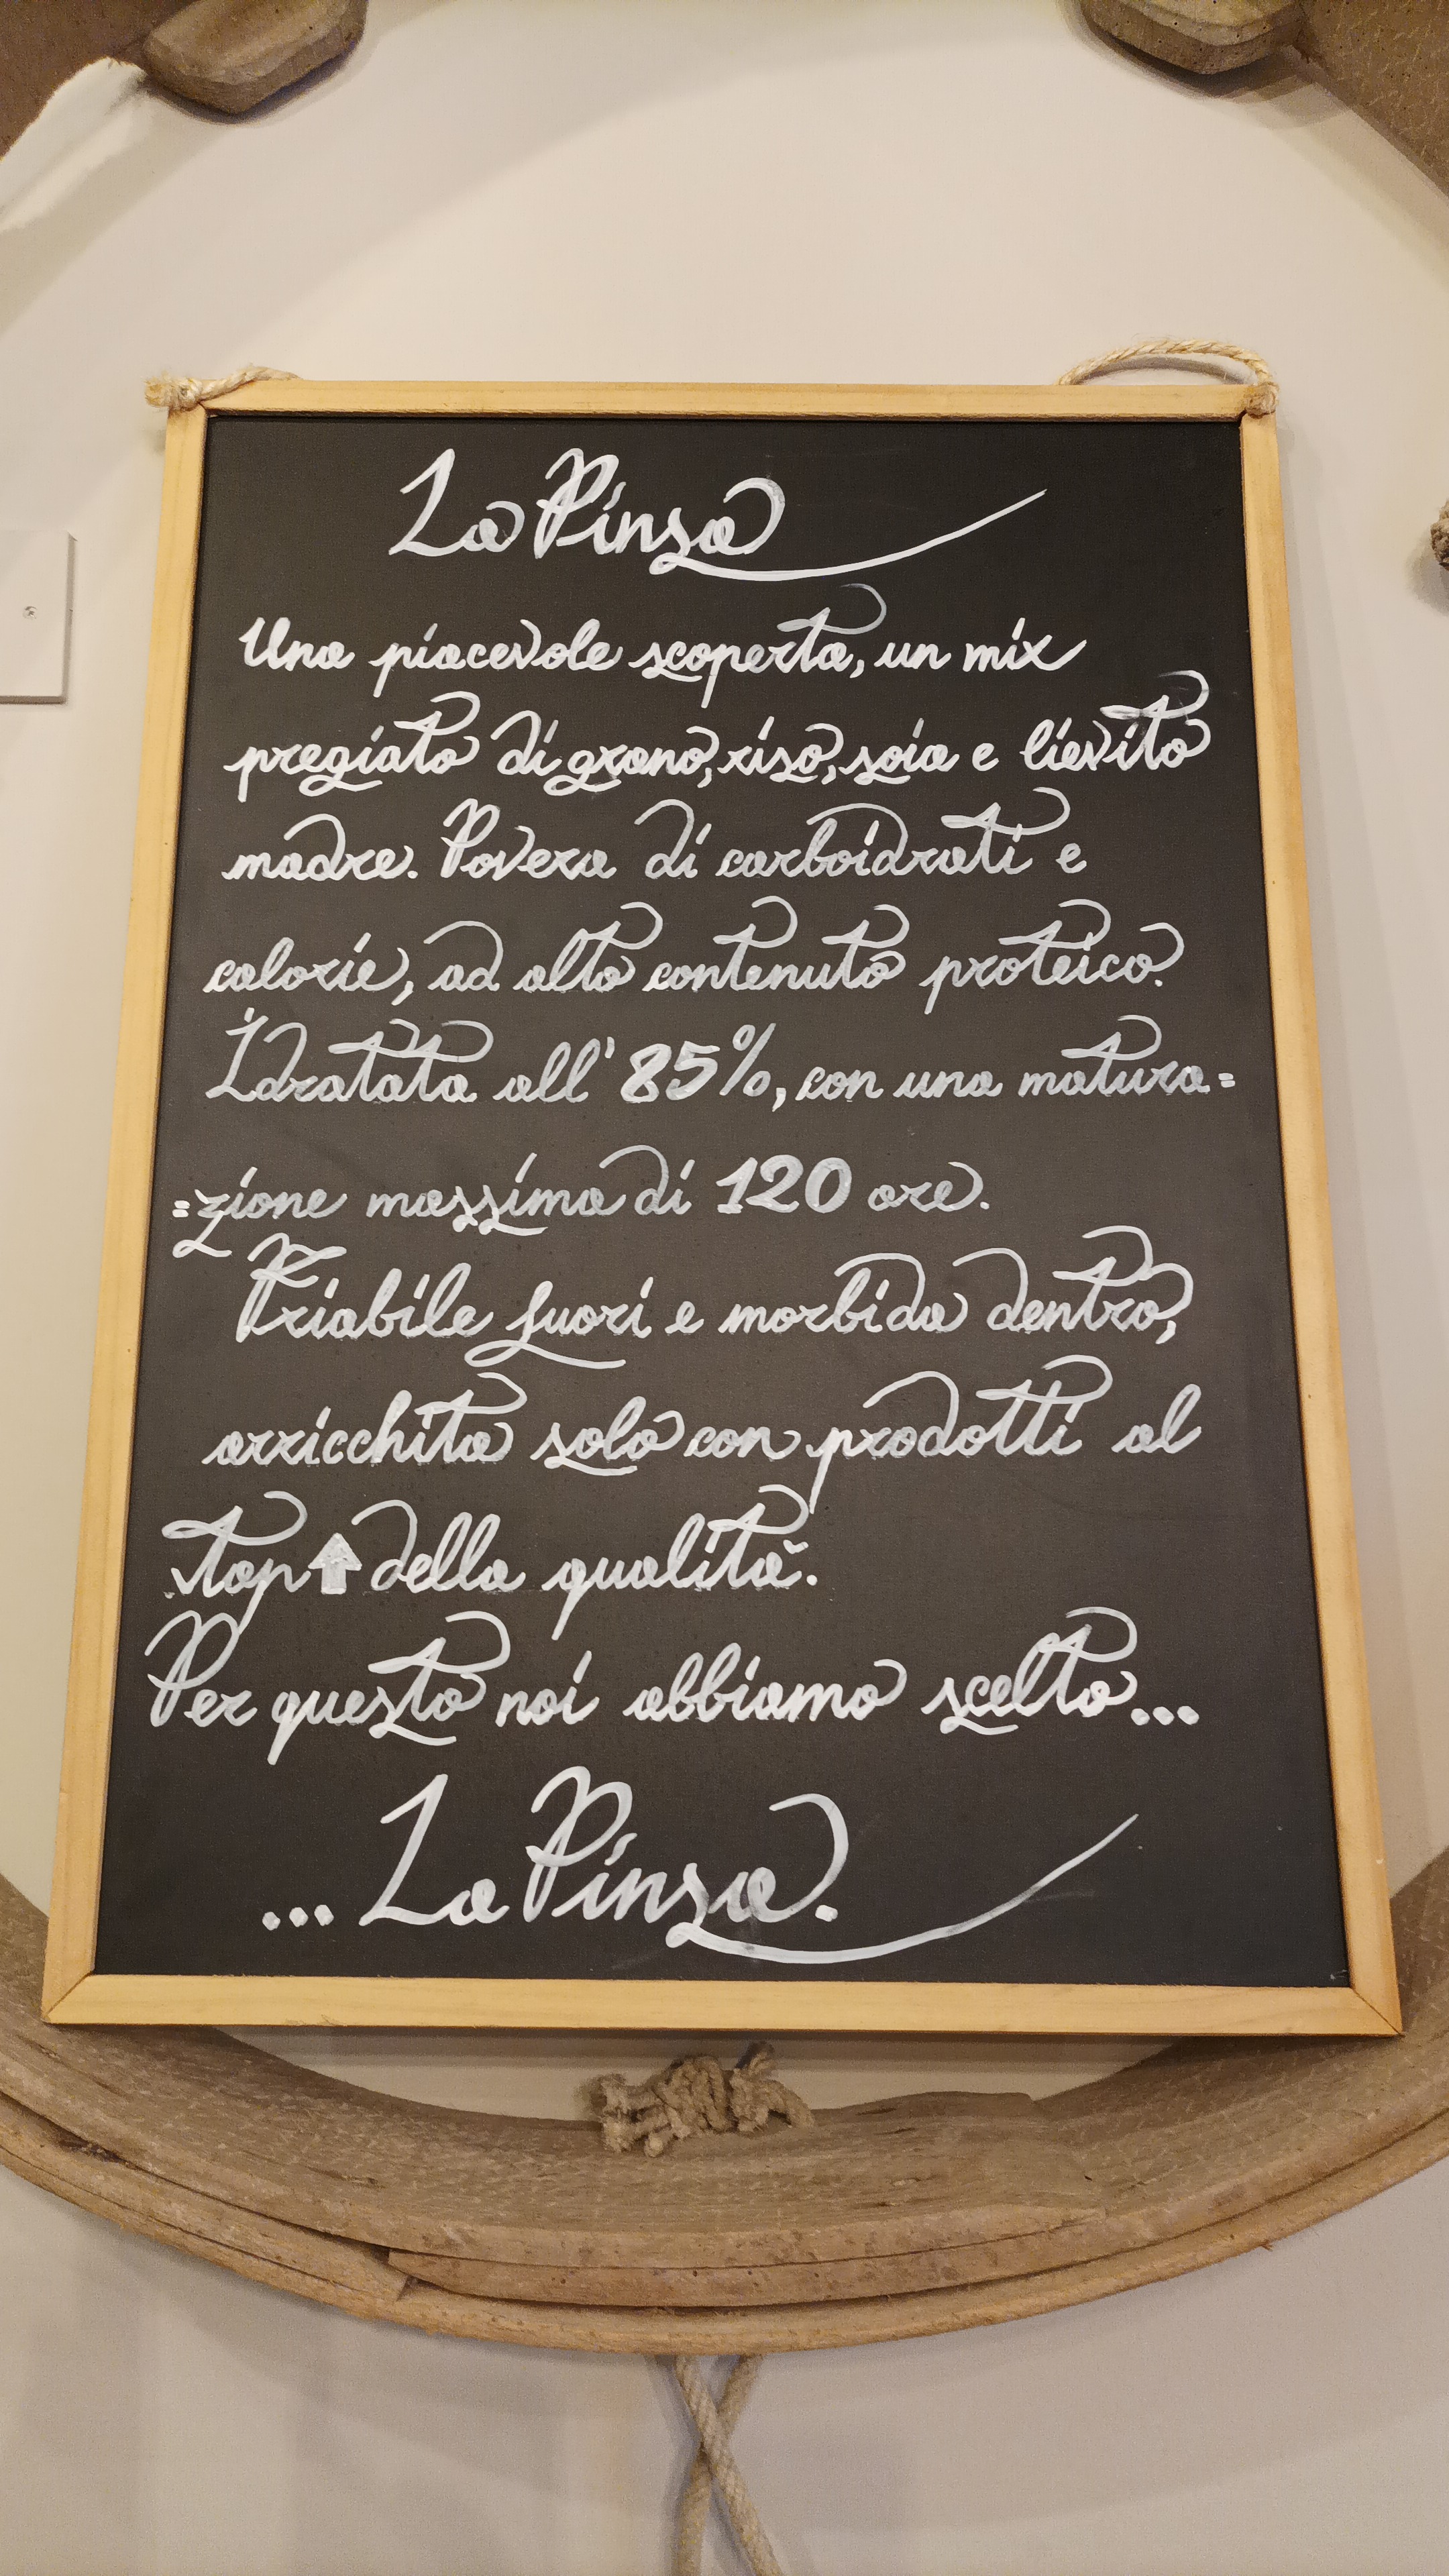 La Pinsa
Una piacevole scoperta, un mix
pregiato di grano, riso, soia e lievito
madre. Povera di carboidrati e
calorie, ad alto contenuto proteico.
Idratata all' 85%, con una matura=
=zione massima di 120 ore.
Friabile fuori e morbida dentro,
arricchita solo con prodotti al
top ⬆ della qualità.
Per questo noi abbiamo scelto...
... La Pinsa.